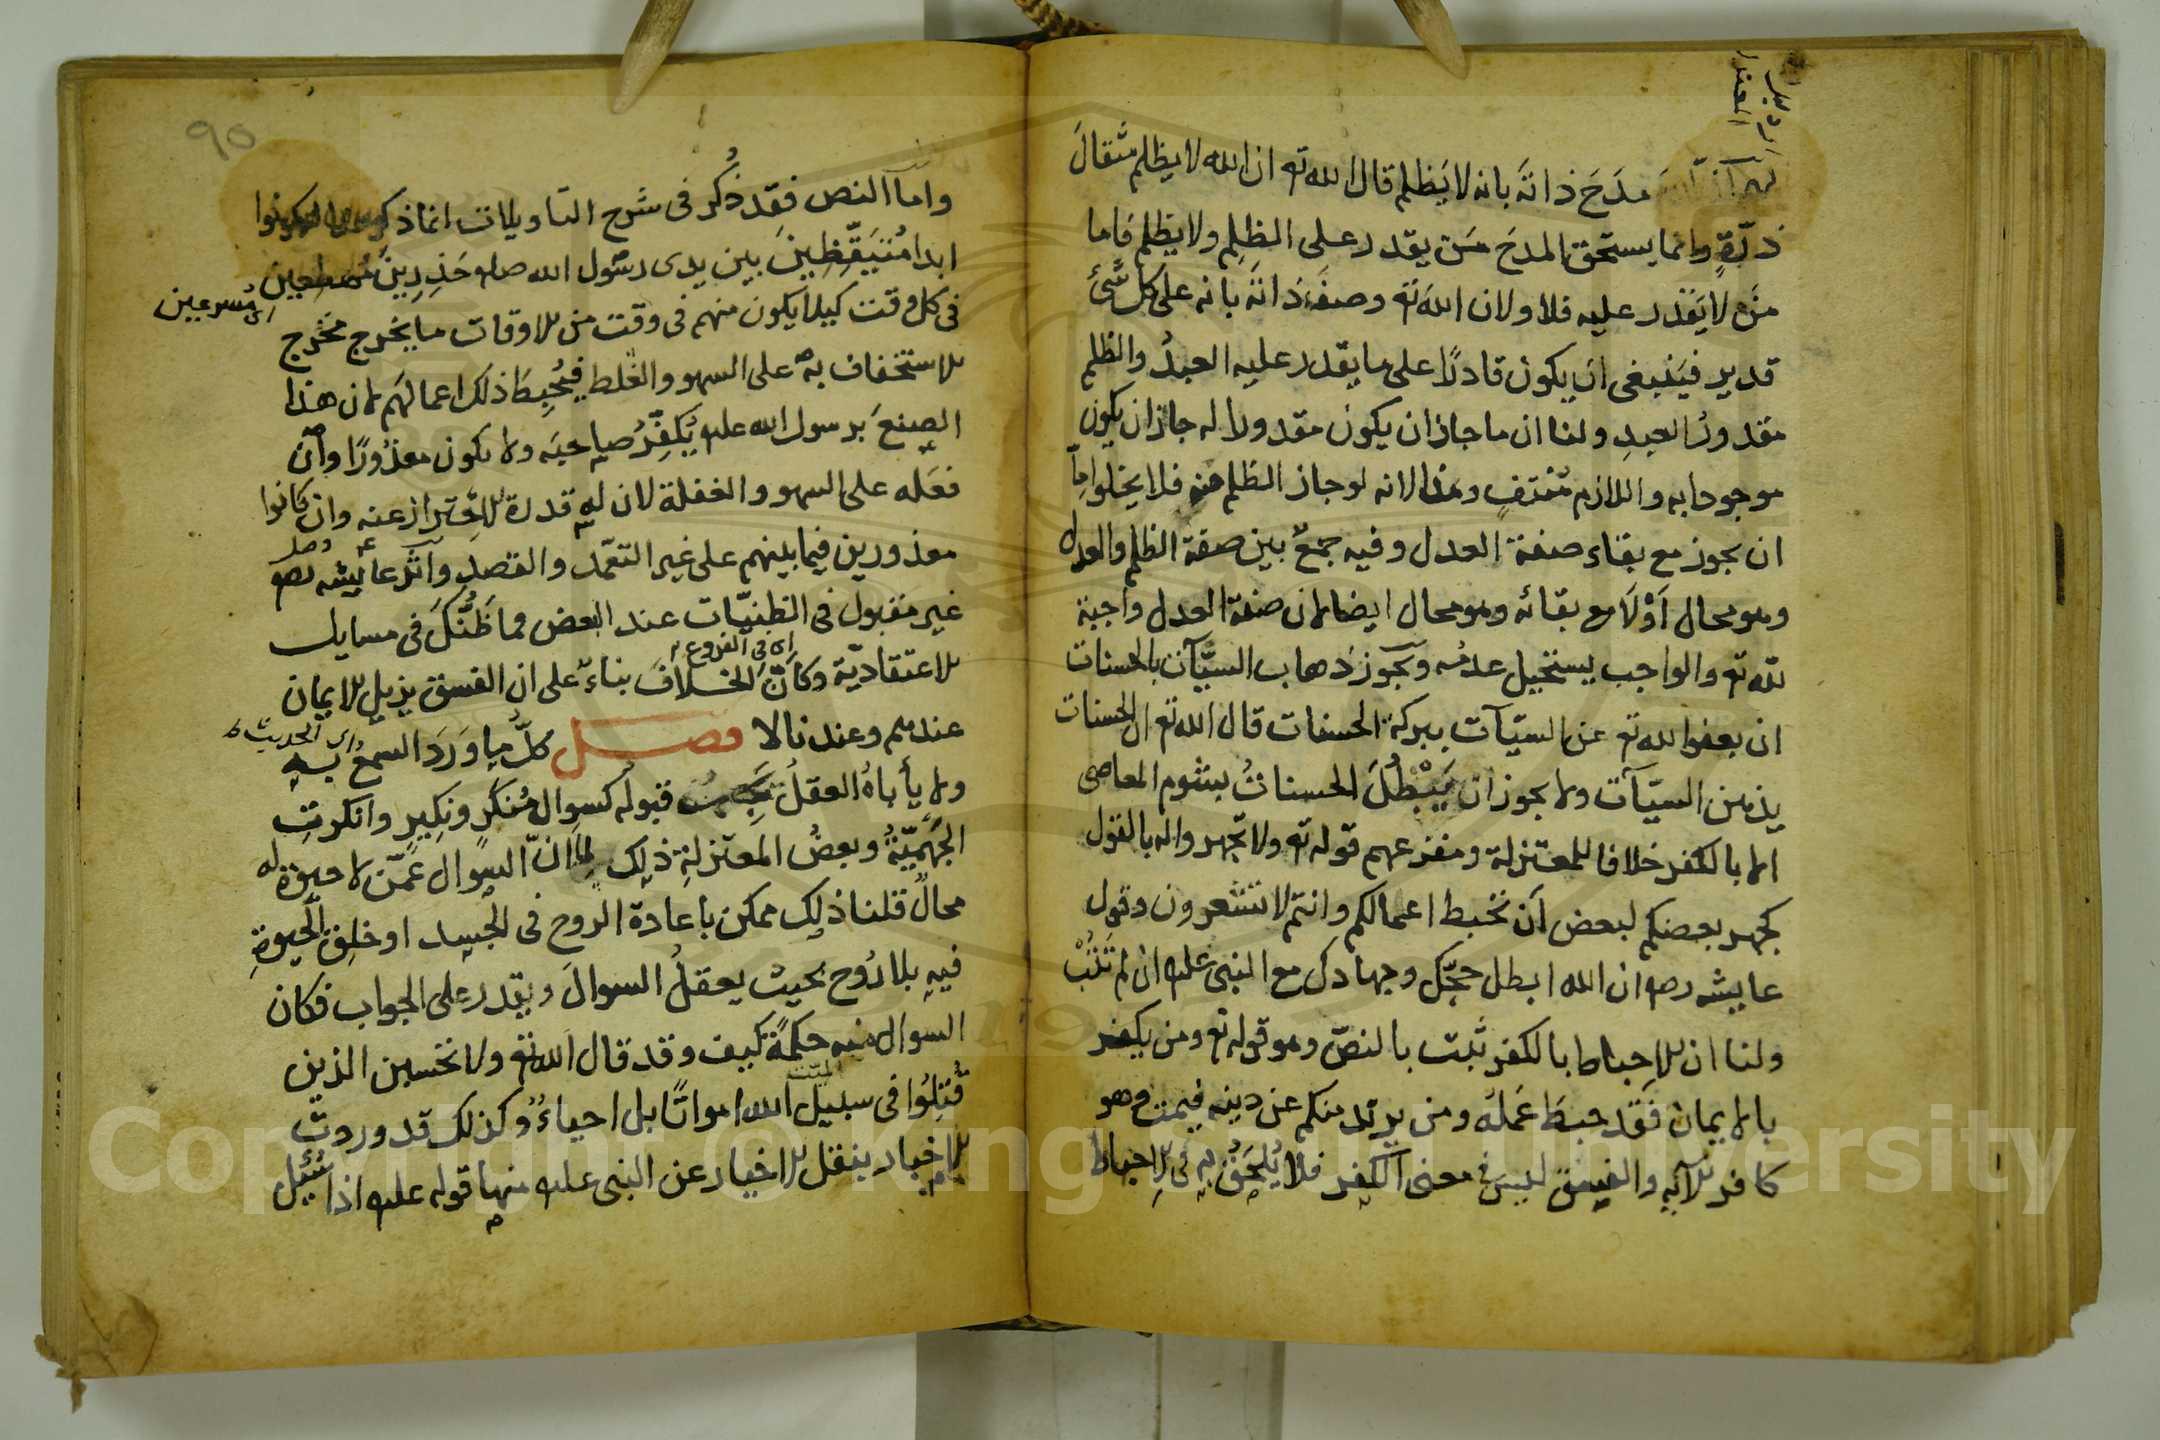 مدَحَ ذاتَه بانه لا يَظلم قال الله تع ان الله لا يظلم مثقالَ
ذرّةٍ وانما يستحق المدحَ مَن يقدر على الظلِم ولا يظلم فاما
مَن لا يَقدر عليه فلا ولان الله تع وصفَ ذاتَه بانه على كل شئ
قدير فيَنبغى ان يكون قادرًا على ما يقدر عليه العبدُ والظلم
مقدورُ العبدِ ولنا ان ما جاز ان يكون مقدورا له جاز ان يكون
موجودا به واللازم مُنتفٍ وهذا لانه لو جاز الظلم منه فلا يخلوا امّا
ان يجوز مع بقاء صفة العدل وفيه جمعٌ بين صفة الظلم والعدل
وهو محال اَوْ لا مع بقائه وهو محال ايضا لان صفة العدل واجبة
لله تع والواجب يستحيل عدمُه ويجوز ذهاب السيّآت بالحسنات
ان يعفوا لله تع عن السيّآت ببركة الحسنات قال الله تع ان الحسنات
يذهبن السيّآت ولا يجوز ان يَبْطُلَ الحسناتُ بشوم المعاصى
الا بالكفر خلافا للمعتزلة ومفزعهم قوله تع ولا تجهروا له بالقول
كجهر بعضكم لبعض اَن تحبط اعمالكم وانتم لا تشعرون وقول
عايشه رضه ان الله ابطل حجّك وجهادك مع النبى علىه ان لم تَتُبْ
ولنا ان الاِحباط بالكفر ثبت بالنصّ وهو قوله تع ومن يكفر
بالايمان فقد حبطَ عَملُه ومن يرتد منكم عن دينه فيمت وهو
كافر الآيه والفسق ليسَ فى معنى الكفر فلا يُلحَقُ به فى الاِحباط
٩٥
واما النص فقد ذُكر فى شرح التاويلات انما ذكر ليكونوا
ابدا مُتيَقِّظِينَ بين يدى رسُول الله صلىه حَذِرِينَ مُهطعين
اى مُسرعين
فى كل وقت كيلا يكون منهم فى وقت من الاوقات ما يخرج مخرج
الاستخفاف به على السهو والغلط فيُحبِطَ ذلك اعمالَهم لان هذا
الصنعَ برسول الله علىه يُكَفِّرُ صاحبَه ولا يكون معذُورًا وان
فعَله على السهو والغفلة لان له قدرة الاحِتراز عنه وان كانوا
معذورين فيما بينهم على غير التعمّد والقصد واَثر عايشه رضه
غير مقبول فى الظنيّات عند البعض فما ظَنُّكَ فى مسايل
اى فى الفروع
الاعتقاديّة وكاَنّ الخلافَ بناءً على ان الفسق يزيل الايمان
عندهم وعندنا لا فصل كلُّ ما وَرَدَ السمعُ به
اى الحديث
ولا يأباهُ العقلُ يَجب قبوله كسوال مُنكَرٍ ونكِيرٍ وانكرتِ
الجَهْمِيّةُ وبعضُ المعتزلةِ ذلك لما انّ السوال عَمّن لا حيوةَ له
محالٌ قلنا ذلك ممكن باعادة الروح فى الجسد او خلق الحيوةِ
فيهِ بلا رُوح بحيث يعقلُ السوالَ ويقدر على الجواب فكان
السوال منه حكمةً كيف وقد قال الله تع ولا تحسبن الذين
قُتِلُوا فى سبيل الله امواتًا بل احياءٌ وكذلك قد وردت
الميت
الاخبار بنقل الاخيار عن النبى علىه منها قوله علىه اذا سُئِل